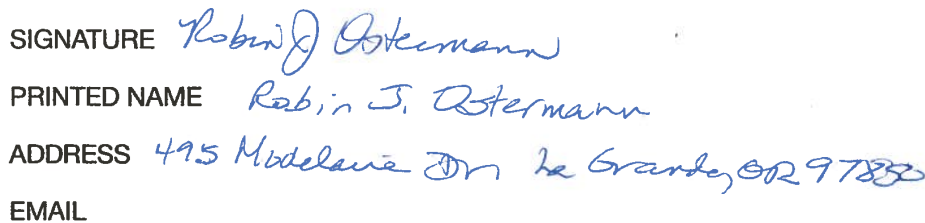 SIGNATURE Robin J Ostermann
PRINTED NAME Robin J. Ostermann
ADDRESS 495 Modelaire Dr La Grande, OR 97850
EMAIL